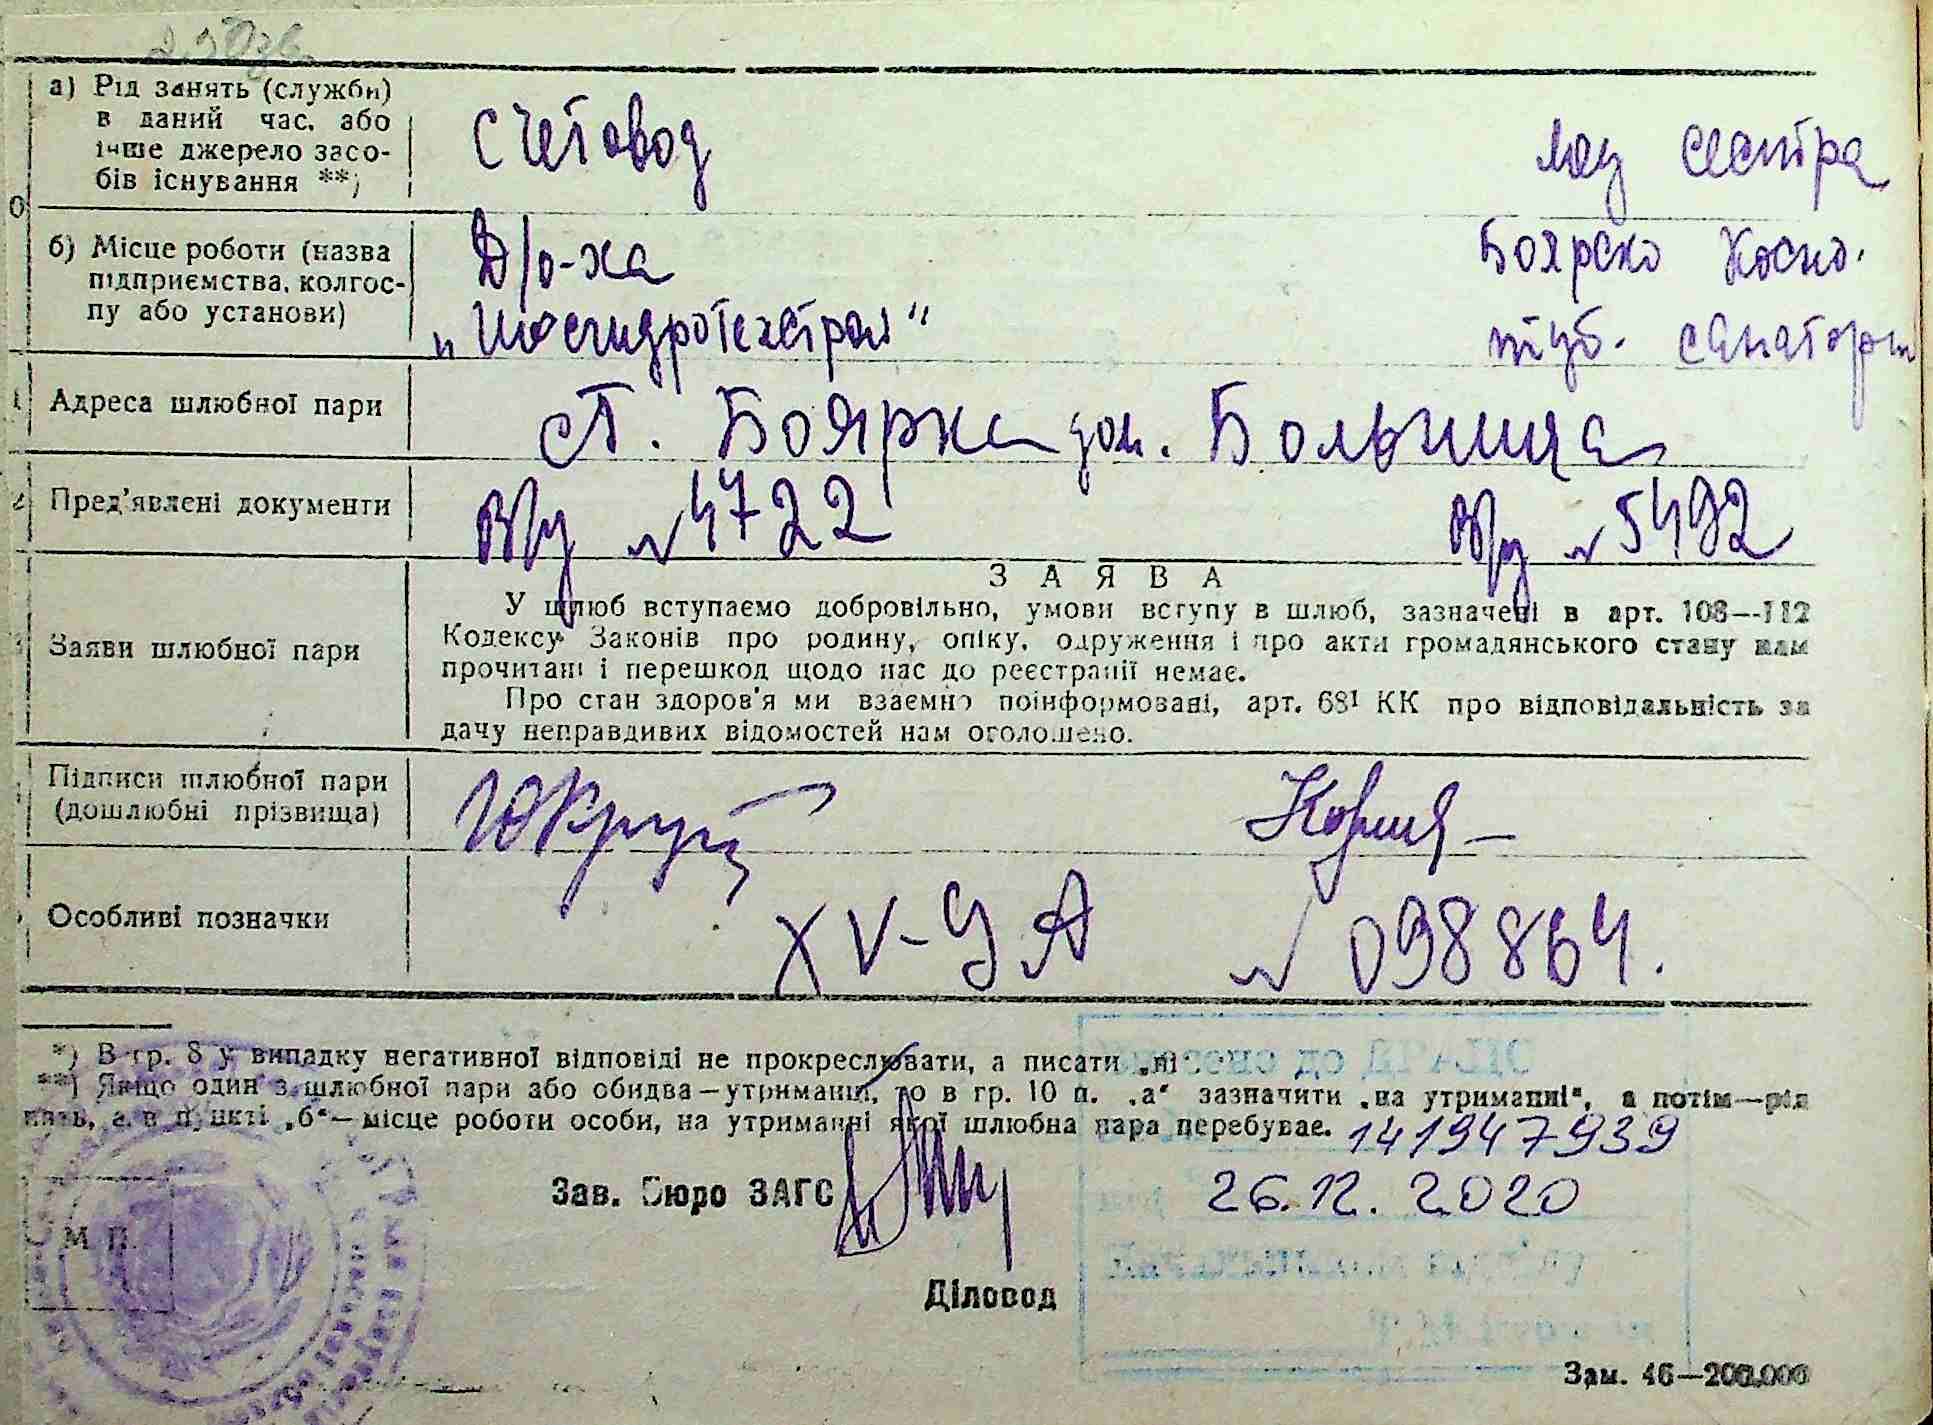 а) Рід занять (служби)
в даний час, або
інше джерело засо-
бів існування **)
Счетовод
мед сестра
б) Місце роботи (назва
підприємства, колгос-
пу або установи)
Д/о-ка
Боярско Косно.
туб. санатори
Адреса шлюбної пари
ст. Боярка дом. Больница
Пред'явлені документи
В/у № 4722
В/у № 5492
ЗАЯВА
Заяви шлюбної пари
У шлюб вступаємо добровільно, умови вступу в шлюб, зазначені в арт. 108—112
Кодексу Законів про родину, опіку, одруження і про акти громадянського стану нам
прочитані і перешкод щодо нас до реєстрації немає.
Про стан здоров'я ми взаємно поінформовані, арт. 68¹ КК про відповідальність за
дачу неправдивих відомостей нам оголошено.
Підписи шлюбної пари
(дошлюбні прізвища)
Особливі позначки
XV-УА № 098864.
*) В гр. 8 у випадку негативної відповіді не прокреслювати, а писати „ні
**) Якщо один з шлюбної пари або обидва—утриманці, то в гр. 10 п. „а“ зазначити „на утриманні“, а потім—рід
нять, а в пункті „б“—місце роботи особи, на утриманні якої шлюбна пара перебуває.
141947939
Зав. Бюро ЗАГС
26.12.2020
М. П.
Діловод
Зам. 46—200.000